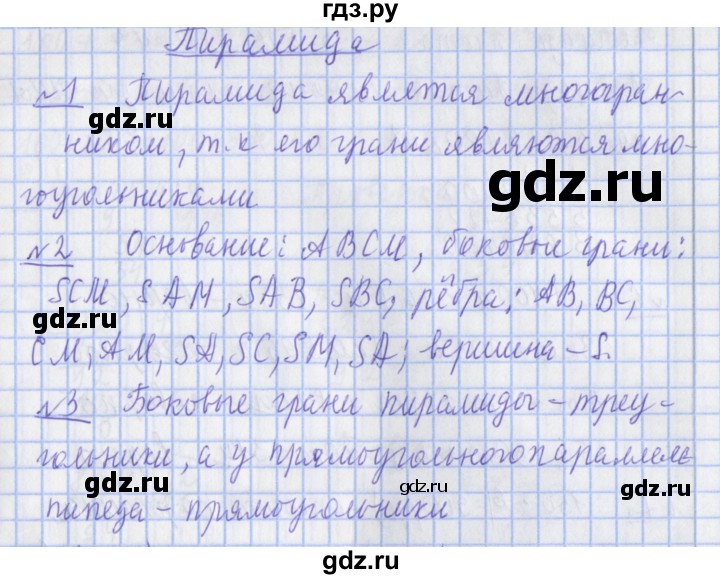 гдз.ру
Пирамида
№1 Пирамида является многогран-
ником, т.к его грани являются мно-
гоугольниками
№2 Основание: ABCM, боковые грани:
SCM, SAM, SAB, SBC, рёбра: AB, BC,
CM, AM, SA, SC, SM, SA; вершина – S.
№3 Боковые грани пирамиды – треу-
гольники, а у прямоугольного параллеле
пипеда – прямоугольники
gdz.ru
gdz.ru
gdz.ru
gdz.ru
gdz.ru
gdz.ru
gdz.ru
gdz.ru
gdz.ru